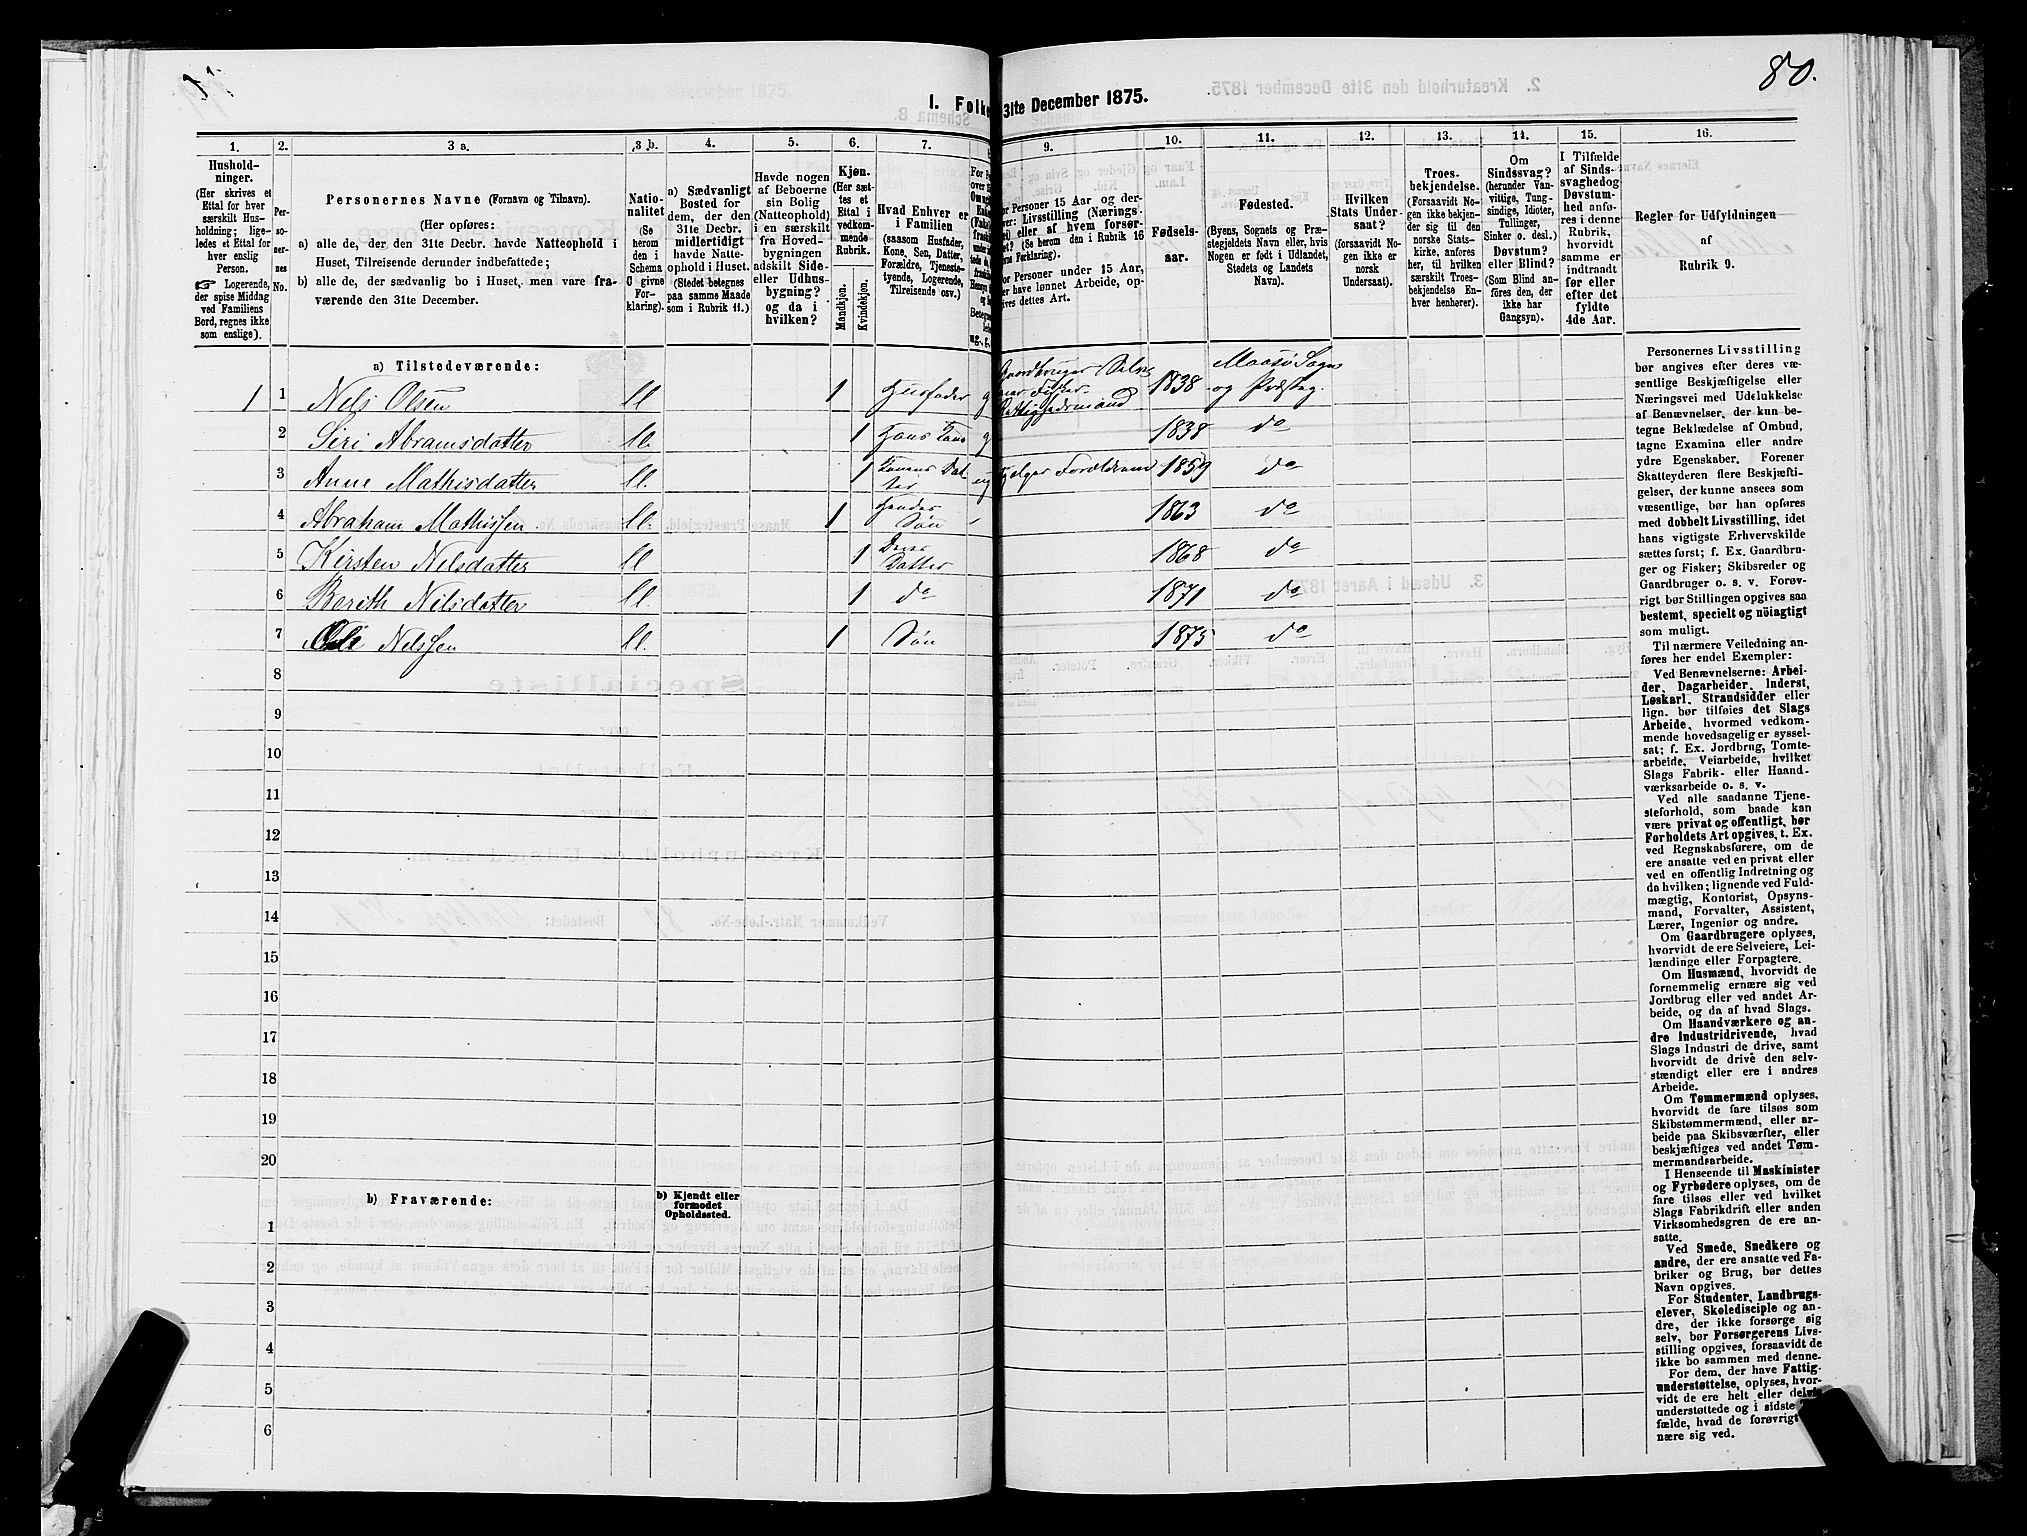 80.
I. Folke 31te December 1875.
1. 2. 3 a. 3 b. 4. 5. 6. 7. 9. 10. 11. 12. 13. 14. 15. 16.
Hushold-
ninger.
(Her skrives et
Ettal for hver
særskilt Hus-
holdning; lige-
ledes et Ettal for
hver enslig
Person.
☞ Logerende,
der spise Middag
ved Familiens
Bord, regnes ikke
som enslige).
Per-
so-
ner-
nes
No.
Personernes Navne (Fornavn og Tilnavn).
(Her opføres:
a) alle de, der den 31te Decbr. havde Natteophold i
Huset, Tilreisende derunder indbefattede;
b) alle de, der sædvanlig bo i Huset, men vare fra-
værende den 31te December.
Natio-
nalitet
(Se
herom
den i
Schema
C givne
For-
klaring).
a) Sædvanligt
Bosted for
dem, der den
31te Decbr.
midlertidigt
havde Natte-
ophold i Huset.
(Stedet betegnes
paa samme Maade
som i Rubrik 11.)
Havde nogen
af Beboerne
sin Bolig
(Natteophold)
i en særskilt
fra Hoved-
bygningen
adskilt Side-
eller Udhus-
bygning?
og da i
hvilken?
Kjøn.
(Her sæt-
tes et
Ettal i
vedkom-
mende
Rubrik.
Mandkjøn.
Kvindekjøn.
Hvad Enhver er
i Familien
(saasom Husfader,
Kone, Søn, Datter,
Forældre, Tjeneste-
tyende, Logerende,
Tilreisende osv.)
Personer 15 Aar og der-
Livsstilling (Nærings-
eller af hvem forsør-
(Se herom den i Rubrik 16
Forklaring).
Personer under 15 Aar,
have lønnet Arbeide, op-
dettes Art.
Fødsels-
aar.
Fødested.
(Byens, Sognets og Præ-
stegjeldets Navn eller, hvis
Nogen er født i Udlandet,
Stedets og Landets
Navn).
Hvilken
Stats Under-
saat?
(forsaavidt No-
gen ikke er
norsk
Undersaat).
Troes-
bekjendelse.
(Forsaavidt No-
gen ikke bekjen-
der sig til den
norske Stats-
kirke, anføres
her, til hvilken
særskilt Troes-
bekjendelse En-
hver henhører).
Om
Sindssvag?
(herunder Van-
vittige, Tung-
sindige, Idioter,
Tullinger,
Sinker o. desl.)
Døvstum?
eller Blind?
(Som Blind an-
føres den, der
ikke har
Gangsyn).
I Tilfælde
af Sinds-
svaghed og
Døvstum-
hed anfø-
res i denne
Rubrik,
hvorvidt
samme er
indtraadt
før eller
efter det
fyldte
4de Aar.
Regler for Udfyldningen
af
Rubrik 9.
a) Tilstedeværende:
1 1 Nels Olsen ll 1 Husfader g Gaardbruger Selv- 1838 Maasø Sogn
og Præsteg.
2 Siri Abramsdatter ll. 1 Hans Kone g 1838 do
3 Anne Mathisdatter ll. 1 Konens Dat-
ter ug hjelper Forældrene 1859 do
4 Abraham Mathissen ll. 1 Hendes
Søn 1863 do
5 Kirsten Nelsdatter ll 1 Deres
Datter 1868 do
6 Berith Nilsdatter ll. 1 do 1871 do
7 Ole Nelssen ll. 1 Søn 1875 do
8
9
10
11
12
13
14
15
16
17
18
19
20
b) Fraværende:
b) Kjendt eller
formodet
Opholdssted.
1
2
3
4
5
6
Personernes Livsstilling
bør angives efter deres væ-
sentlige Beskjæftigelse eller
Næringsvei med Udelukkelse
af Benævnelser, der kun be-
tegne Beklædelse af Ombud,
tagne Examina eller andre
ydre Egenskaber. Forener
Skatteyderen flere Beskjæfti-
gelser, der kunne ansees som
væsentlige, bør han opføres
med dobbelt Livsstilling, idet
hans vigtigste Erhvervskilde
sættes først; f. Ex. Gaardbru-
ger og Fisker; Skibsreder og
Gaardbruger o. s. v. Forøv-
rigt bør Stillingen opgives saa
bestemt, specielt og nøiagtigt
som muligt.
Til nærmere Veiledning an-
føres her endel Exempler:
Ved Benævnelserne: Arbei-
der, Dagarbeider, Inderst,
Løskarl, Strandsidder eller
lign. bør tilføies det Slags
Arbeide, hvormed vedkom-
mende hovedsagelig er syssel-
sat; f. Ex. Jordbrug, Tomte-
arbeide, Veiarbeide, hvilket
Slags Fabrik- eller Haand-
værksarbeide o. s. v.
Ved alle saadanne Tjene-
steforhold, som baade kan
være privat og offentligt, bør
Forholdets Art opgives, t. Ex.
ved Regnskabsførere, om de
ere ansatte ved en privat eller
ved en offentlig Indretning og
da hvilken; lignende ved Fuld-
mægtig, Kontorist, Opsyns-
mand, Forvalter, Assistent,
Lærer, Ingeniør og andre.
Om Gaardbrugere oplyses,
hvorvidt de ere Selveiere, Lei-
lændinge eller Forpagtere.
Om Husmænd, hvorvidt de
fornemmelig ernære sig ved
Jordbrug eller ved andet Ar-
beide, og da af hvad Slags.
Om Haandværkere og an-
dre Industridrivende, hvad
Slags Industri de drive, samt
hvorvidt de drive den selv-
stændigt eller ere i andres
Arbeide.
Om Tømmermænd oplyses,
hvorvidt de fare tilsøs som
Skibstømmermænd, eller ar-
beide paa Skibsværfter, eller
beskjæftiges ved andet Tøm-
mermandsarbeide.
I Henseende til Maskinister
og Fyrbødere oplyses, om de
fare tilsøs eller ved hvilket
Slags Fabrikdrift eller anden
Virksomhedsgren de ere an-
satte.
Ved Smede, Snedkere og
andre, der ere ansatte ved Fa-
briker og Brug, bør dettes
Navn opgives.
For Studenter, Landbrugs-
elever, Skoledisciple og an-
dre, der ikke forsørge sig
selv, bør Forsørgerens Livs-
stilling opgives, forsaavidt de
ikke bo sammen med denne.
For dem, der have Fattig-
understøttelse, oplyses, hvor-
vidt de ere helt eller delvis
understøttede og i sidste
fælde, hvad de forøvrigt
nære sig ved.